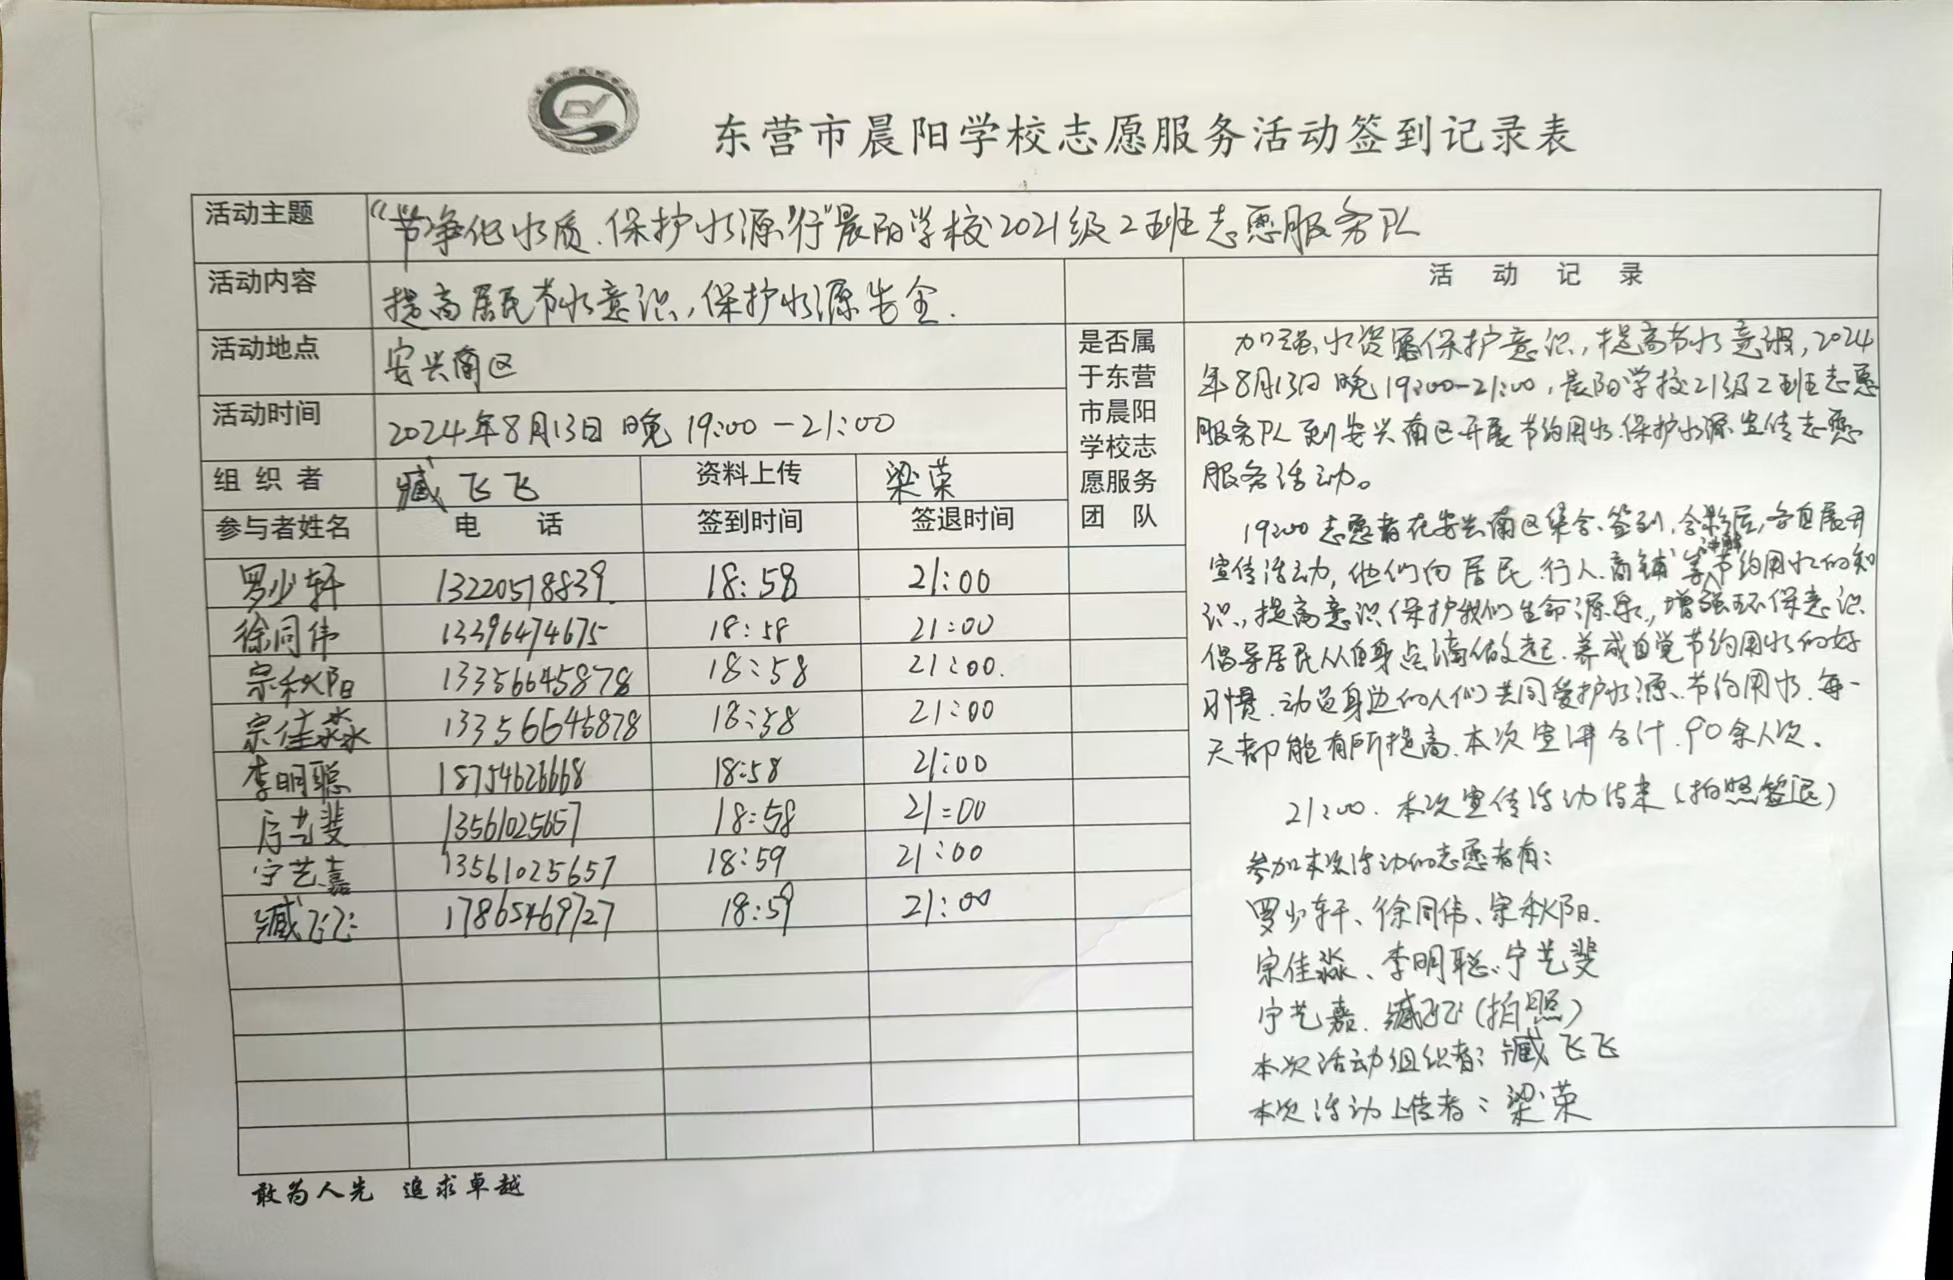 东营市晨阳学校志愿服务活动签到记录表
活动主题 “节净化水质、保护水源”行”晨阳学校2021级2班志愿服务队
活动内容 提高居民节水意识，保护水源安全.
活动地点 安兴南区
活动时间 2024年8月13日 晚 19:00-21:00
组织者 臧飞飞 资料上传 梁荣
参与者姓名 电话 签到时间 签退时间
是否属
于东营
市晨阳
学校志
愿服务
团队
罗少轩 13220518839 18:58 21:00
徐同伟 13396474675 18:58 21:00
宗秋阳 13356645878 18:58 21:00.
宗佳淼 13356645878 18:58 21:00
李明聪 18754626668 18:58 21:00
宁艺斐 13561025657 18:58 21:00
宁艺嘉 13561025657 18:59 21:00
臧飞飞 17865469727 18:59 21:00
活动记录
加强水资源保护意识，提高节水意识，2024
年8月13日晚19:00-21:00，晨阳学校21级2班志愿
服务队到安兴南区开展节约用水.保护水源宣传志愿
服务活动。
19:00志愿者在安兴南区集合、签到，合影后，各自展开
宣传活动，他们向居民.行人.商铺等节约用水的知
识，提高意识保护我们生命源泉，增强环保意识
倡导居民从自身点滴做起.养成自觉节约用水的好
习惯.动员身边的人们共同爱护水源、节约用水.每一
天都能有所提高.本次宣讲合计.90余人次.
21:00.本次宣传活动结束（拍照签退）
参加本次活动的志愿者有：
罗少轩、徐同伟、宗秋阳.
宗佳淼、李明聪、宁艺斐
宁艺嘉.臧飞飞（拍照）
本次活动组织者：臧飞飞
本次活动上传者：梁荣
敢为人先 追求卓越